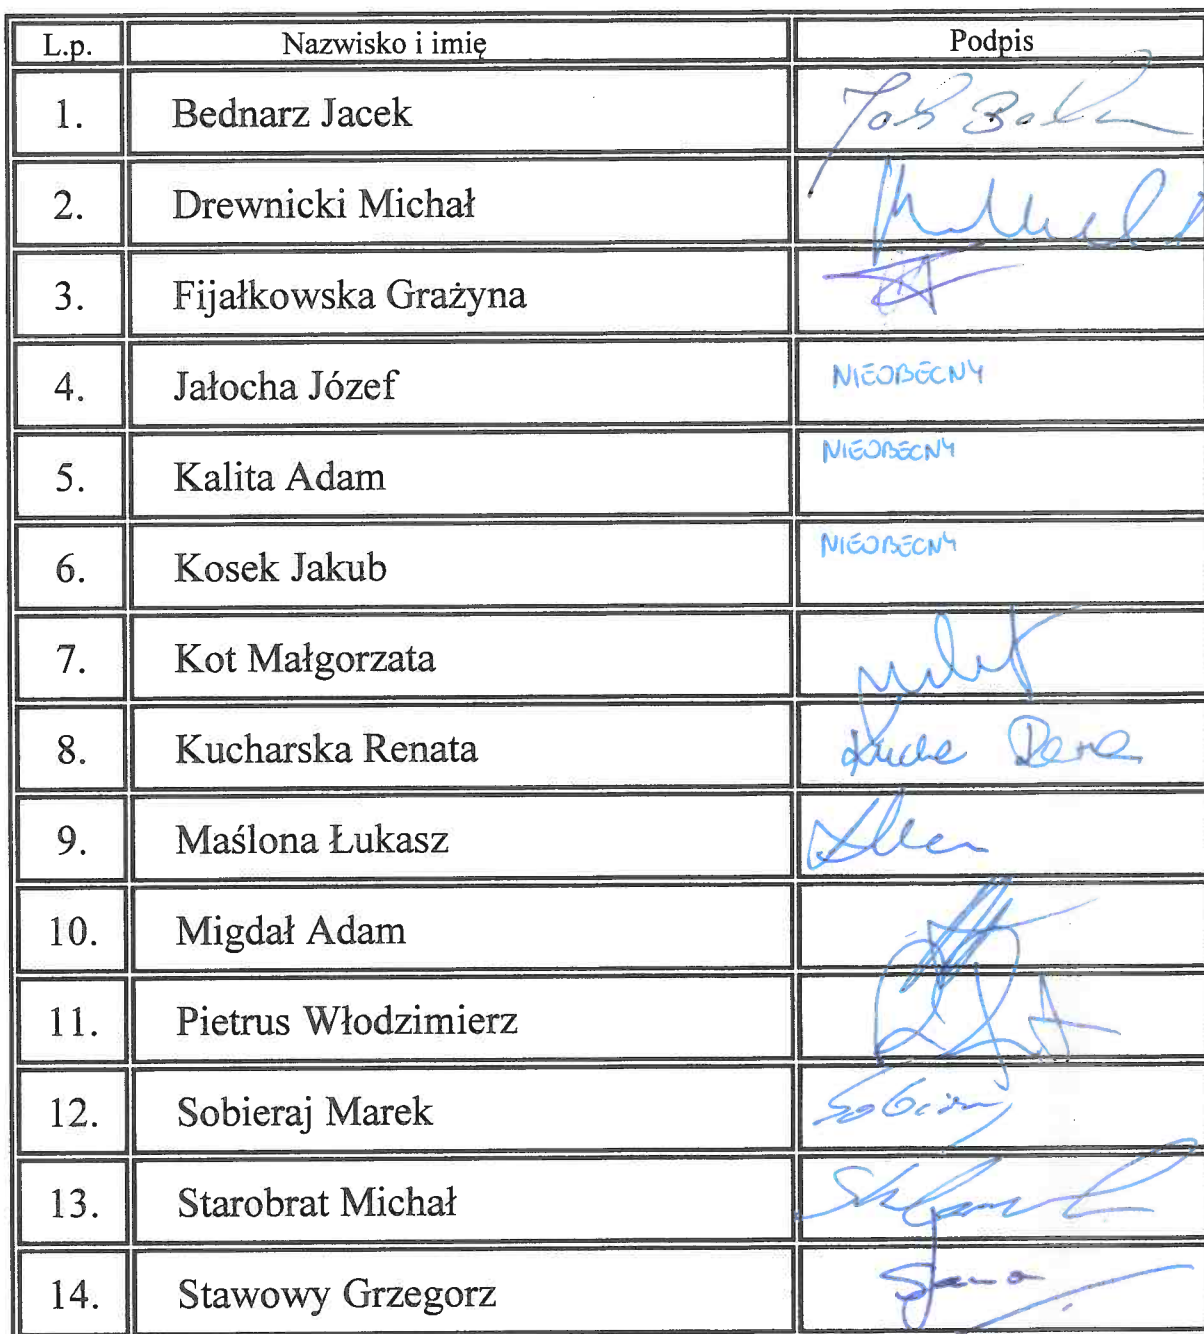 L.p. Nazwisko i imię Podpis
1. Bednarz Jacek
2. Drewnicki Michał
3. Fijałkowska Grażyna
4. Jałocha Józef NIEOBECNY
5. Kalita Adam NIEOBECNY
6. Kosek Jakub NIEOBECNY
7. Kot Małgorzata
8. Kucharska Renata
9. Maślona Łukasz
10. Migdał Adam
11. Pietrus Włodzimierz
12. Sobieraj Marek
13. Starobrat Michał
14. Stawowy Grzegorz